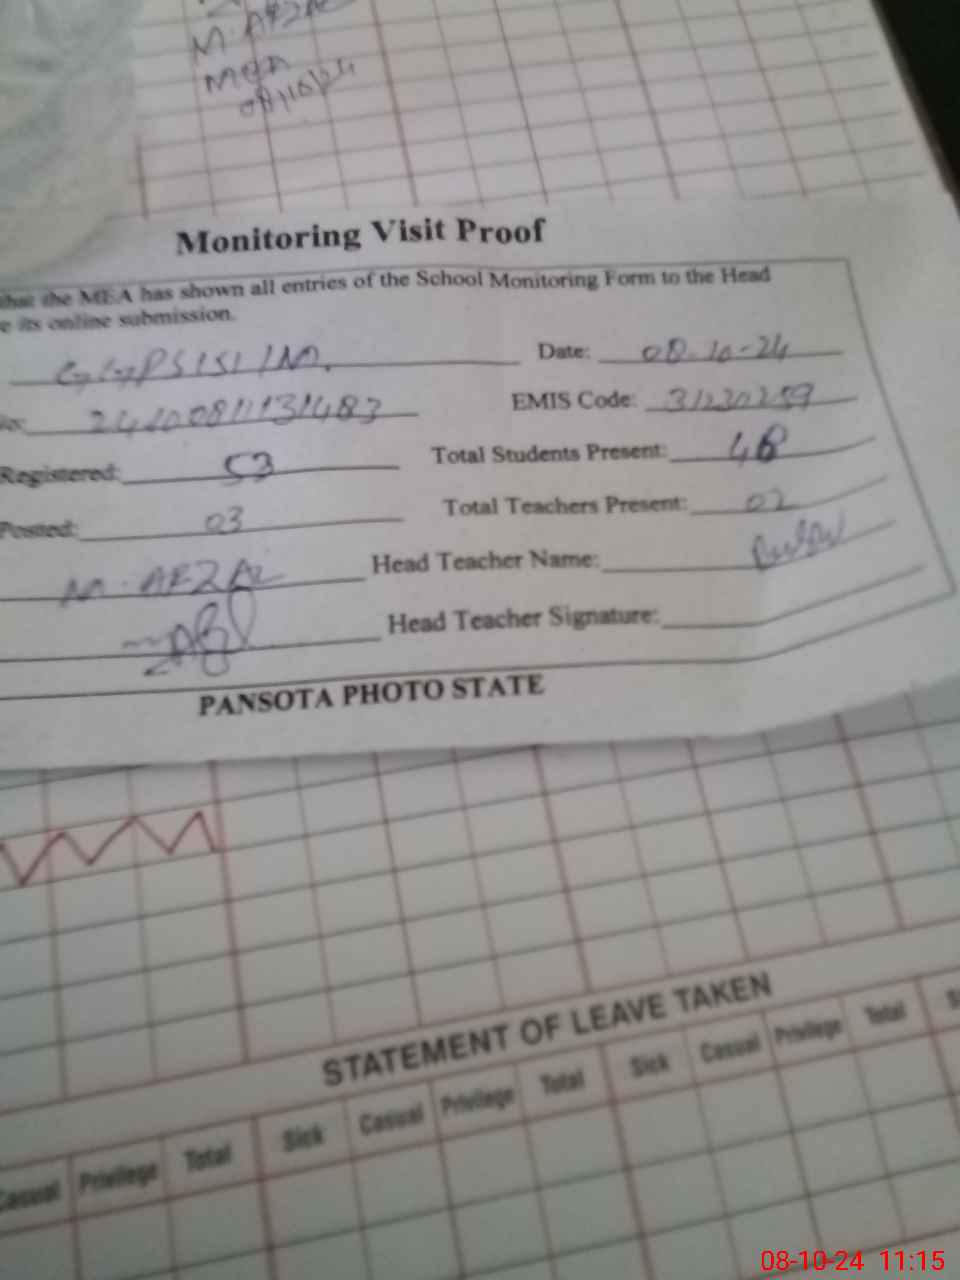 M. ARZAL
MEA
Monitoring Visit Proof
that the MEA has shown all entries of the School Monitoring Form to the Head
e its online submission.
GGPS 151/M. Date: 08-10-24
24100811131483 EMIS Code: 31230259
Registered: 53 Total Students Present: 48
Posted: 03 Total Teachers Present: 02
M. ARZAL Head Teacher Name:
Head Teacher Signature:
PANSOTA PHOTO STATE
STATEMENT OF LEAVE TAKEN
Casual Privilege Total Sick Casual Privilege Total Sick Casual Privilege Total
08-10-24 11:15